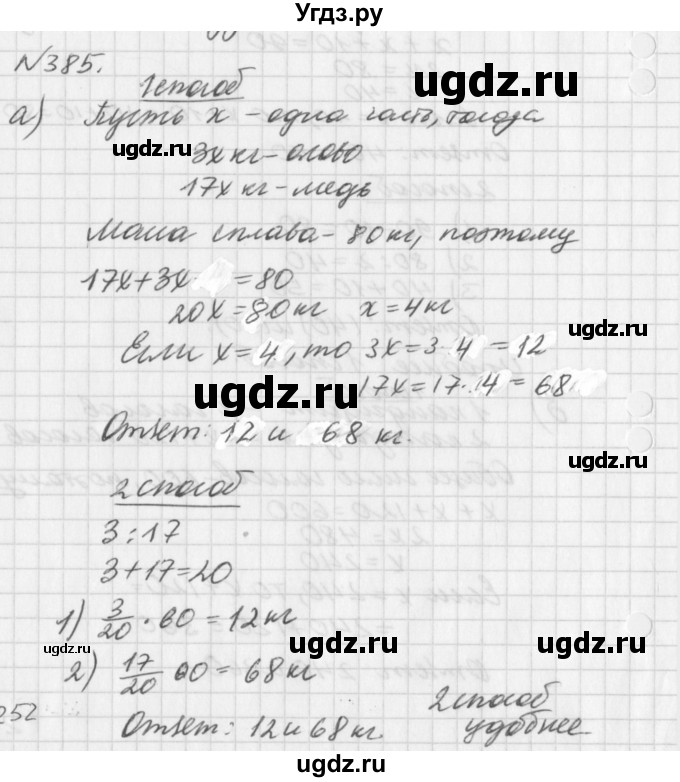 Угдз.ру
№385.
1 способ
а) Пусть x – одна часть, тогда
ugdz.ru
ugdz.ru
3x кг – олово
17x кг – медь
Масса сплава – 80 кг, поэтому
17x+3x = 80
ugdz.ru
20x = 80 кг x = 4 кг
ugdz.ru
Если x = 4, то 3x = 3 4 = 12
ugdz.ru
17x = 17·4 = 68
Ответ: 12 и 68 кг.
ugdz.ru
2 способ
3 : 17
ugdz.ru
3 + 17 = 20
1) 3/20 · 80 = 12 кг
ugdz.ru
ugdz.ru
2) 17/20 80 = 68 кг
252
Ответ: 12 и 68 кг.
2 способ
удобнее.
ugdz.ru
ugdz.ru